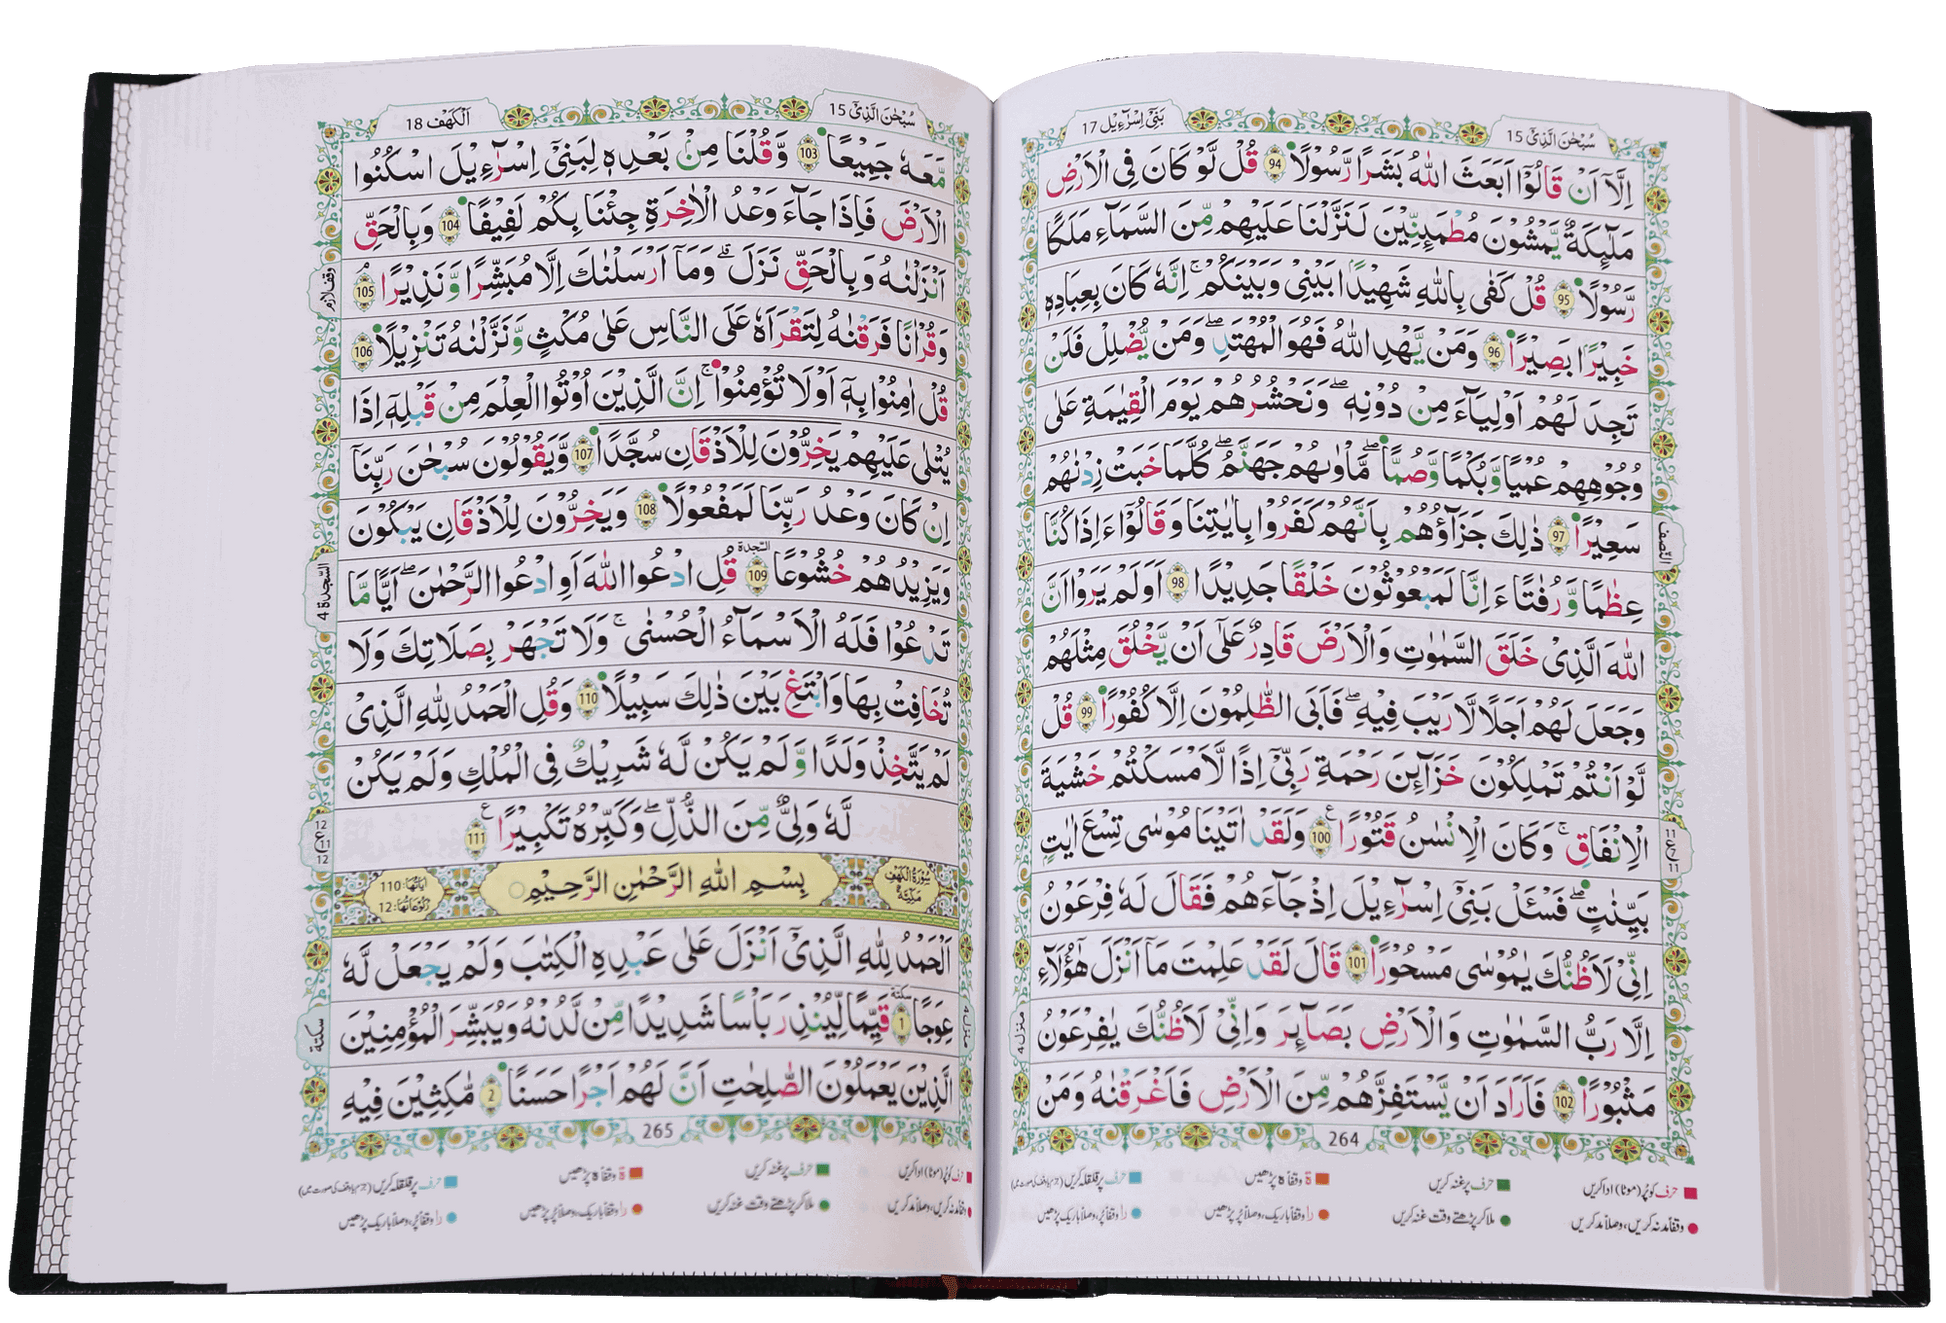 سُبْحٰنَ الَّذِیْۤ 15
بَنِیْۤ اِسْرَآءِیْل 17
اِلَّاۤ اَنْ قَالُوْۤا اَبَعَثَ اللّٰهُ بَشَرًا رَّسُوْلًا 94 قُلْ لَّوْ كَانَ فِی الْاَرْضِ
مَلٰٓئِكَةٌ یَّمْشُوْنَ مُطْمَئِنِّیْنَ لَنَزَّلْنَا عَلَیْهِمْ مِّنَ السَّمَآءِ مَلَكًا
رَّسُوْلًا 95 قُلْ كَفٰی بِاللّٰهِ شَهِیْدًۢا بَیْنِیْ وَبَیْنَكُمْ ؕ اِنَّهٗ كَانَ بِعِبَادِهٖ
خَبِیْرًۢا بَصِیْرًا 96 وَمَنْ یَّهْدِ اللّٰهُ فَهُوَ الْمُهْتَدِ ۚ وَمَنْ یُّضْلِلْ فَلَنْ
تَجِدَ لَهُمْ اَوْلِیَآءَ مِنْ دُوْنِهٖ ؕ وَنَحْشُرُهُمْ یَوْمَ الْقِیٰمَةِ عَلٰی
وُجُوْهِهِمْ عُمْیًا وَّبُكْمًا وَّصُمًّا ؕ مَاْوٰىهُمْ جَهَنَّمُ ؕ كُلَّمَا خَبَتْ زِدْنٰهُمْ
سَعِیْرًا 97 ذٰلِكَ جَزَآؤُهُمْ بِاَنَّهُمْ كَفَرُوْا بِاٰیٰتِنَا وَقَالُوْۤا ءَاِذَا كُنَّا
النّصف
عِظَامًا وَّرُفَاتًا ءَاِنَّا لَمَبْعُوْثُوْنَ خَلْقًا جَدِیْدًا 98 اَوَلَمْ یَرَوْا اَنَّ
اللّٰهَ الَّذِیْ خَلَقَ السَّمٰوٰتِ وَالْاَرْضَ قَادِرٌ عَلٰۤی اَنْ یَّخْلُقَ مِثْلَهُمْ
وَجَعَلَ لَهُمْ اَجَلًا لَّا رَیْبَ فِیْهِ ؕ فَاَبَی الظّٰلِمُوْنَ اِلَّا كُفُوْرًا 99 قُلْ
لَّوْ اَنْتُمْ تَمْلِكُوْنَ خَزَآئِنَ رَحْمَةِ رَبِّیْۤ اِذًا لَّاَمْسَكْتُمْ خَشْیَةَ
الْاِنْفَاقِ ؕ وَكَانَ الْاِنْسَانُ قَتُوْرًا 100 وَلَقَدْ اٰتَیْنَا مُوْسٰی تِسْعَ اٰیٰتٍۭ
11 ع 11
بَیِّنٰتٍ فَسْـَٔلْ بَنِیْۤ اِسْرَآءِیْلَ اِذْ جَآءَهُمْ فَقَالَ لَهٗ فِرْعَوْنُ
اِنِّیْ لَاَظُنُّكَ یٰمُوْسٰی مَسْحُوْرًا 101 قَالَ لَقَدْ عَلِمْتَ مَاۤ اَنْزَلَ هٰۤؤُلَآءِ
اِلَّا رَبُّ السَّمٰوٰتِ وَالْاَرْضِ بَصَآئِرَ ۚ وَاِنِّیْ لَاَظُنُّكَ یٰفِرْعَوْنُ
منزل 4
مَثْبُوْرًا 102 فَاَرَادَ اَنْ یَّسْتَفِزَّهُمْ مِّنَ الْاَرْضِ فَاَغْرَقْنٰهُ وَمَنْ
264
حرف کو پُر (موٹا) ادا کریں
حرف پر غنہ کریں
ة وقفاً ہ پڑھیں
حرف پر قلقلہ کریں
وقفاً مد نہ کریں، وصلاً مد کریں
ملا کر پڑھتے وقت غنہ کریں
را وقفاً باریک، وصلاً پُر پڑھیں
را وقفاً پُر، وصلاً باریک پڑھیں
سُبْحٰنَ الَّذِیْۤ 15
اَلْكَهْف 18
مَّعَهٗ جَمِیْعًا 103 وَّقُلْنَا مِنْۢ بَعْدِهٖ لِبَنِیْۤ اِسْرَآءِیْلَ اسْكُنُوا
الْاَرْضَ فَاِذَا جَآءَ وَعْدُ الْاٰخِرَةِ جِئْنَا بِكُمْ لَفِیْفًا 104 وَبِالْحَقِّ
اَنْزَلْنٰهُ وَبِالْحَقِّ نَزَلَ ؕ وَمَاۤ اَرْسَلْنٰكَ اِلَّا مُبَشِّرًا وَّنَذِیْرًا 105
وَقُرْاٰنًا فَرَقْنٰهُ لِتَقْرَاَهٗ عَلَی النَّاسِ عَلٰی مُكْثٍ وَّنَزَّلْنٰهُ تَنْزِیْلًا 106
قُلْ اٰمِنُوْا بِهٖۤ اَوْ لَا تُؤْمِنُوْا ؕ اِنَّ الَّذِیْنَ اُوْتُوا الْعِلْمَ مِنْ قَبْلِهٖۤ اِذَا
یُتْلٰی عَلَیْهِمْ یَخِرُّوْنَ لِلْاَذْقَانِ سُجَّدًا 107 وَّیَقُوْلُوْنَ سُبْحٰنَ رَبِّنَاۤ
اِنْ كَانَ وَعْدُ رَبِّنَا لَمَفْعُوْلًا 108 وَیَخِرُّوْنَ لِلْاَذْقَانِ یَبْكُوْنَ
وَیَزِیْدُهُمْ خُشُوْعًا 109 السّجدة قُلِ ادْعُوا اللّٰهَ اَوِ ادْعُوا الرَّحْمٰنَ ؕ اَیًّا مَّا
السّجدة 4
تَدْعُوْا فَلَهُ الْاَسْمَآءُ الْحُسْنٰی ۚ وَلَا تَجْهَرْ بِصَلَاتِكَ وَلَا
تُخَافِتْ بِهَا وَابْتَغِ بَیْنَ ذٰلِكَ سَبِیْلًا 110 وَقُلِ الْحَمْدُ لِلّٰهِ الَّذِیْ
لَمْ یَتَّخِذْ وَلَدًا وَّلَمْ یَكُنْ لَّهٗ شَرِیْكٌ فِی الْمُلْكِ وَلَمْ یَكُنْ
لَّهٗ وَلِیٌّ مِّنَ الذُّلِّ وَكَبِّرْهُ تَكْبِیْرًا 111
12 ع 12
سُوْرَةُ الْكَهْفِ مَكِّیَّة
بِسْمِ اللّٰهِ الرَّحْمٰنِ الرَّحِیْمِ
اٰیَاتُهَا: 110
رُكُوْعَاتُهَا: 12
اَلْحَمْدُ لِلّٰهِ الَّذِیْۤ اَنْزَلَ عَلٰی عَبْدِهِ الْكِتٰبَ وَلَمْ یَجْعَلْ لَّهٗ
عِوَجًا 1 سكتة قَیِّمًا لِّیُنْذِرَ بَاْسًا شَدِیْدًا مِّنْ لَّدُنْهُ وَیُبَشِّرَ الْمُؤْمِنِیْنَ
منزل 4
سكتة
الَّذِیْنَ یَعْمَلُوْنَ الصّٰلِحٰتِ اَنَّ لَهُمْ اَجْرًا حَسَنًا 2 مَّاكِثِیْنَ فِیْهِ
265
حرف کو پُر (موٹا) ادا کریں
حرف پر غنہ کریں
ة وقفاً ہ پڑھیں
حرف پر قلقلہ کریں
وقفاً مد نہ کریں، وصلاً مد کریں
ملا کر پڑھتے وقت غنہ کریں
را وقفاً باریک، وصلاً پُر پڑھیں
را وقفاً پُر، وصلاً باریک پڑھیں